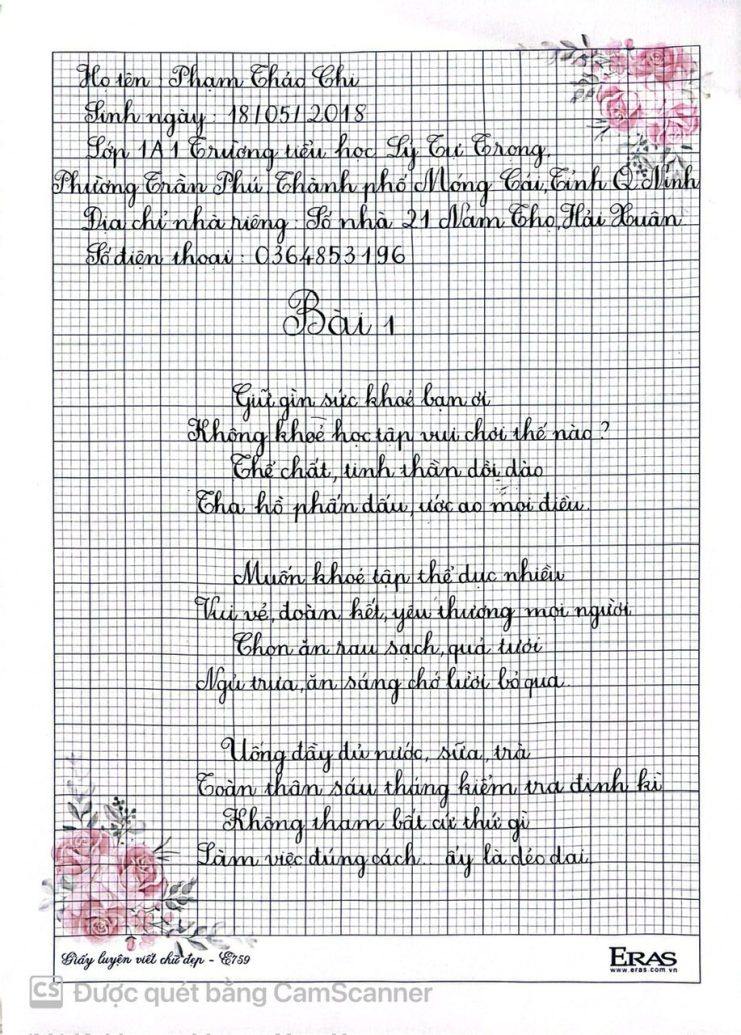 Họ tên : Phạm Thảo Chi
Sinh ngày : 18/05/2018
Lớp 1A1 Trường tiểu học Lý Tự Trọng.
Phường Trần Phú. Thành phố Móng Cái, Tỉnh Q. Ninh
Địa chỉ nhà riêng : Số nhà 21 Nam Thọ, Hải Xuân
Số điện thoại : 0364853196
Bài 1
Giữ gìn sức khoẻ bạn ơi
Không khoẻ học tập vui chơi thế nào ?
Thể chất, tinh thần dồi dào
Tha hồ phấn đấu, ước ao mọi điều.
Muốn khoẻ tập thể dục nhiều
Vui vẻ, đoàn kết, yêu thương mọi người.
Chọn ăn rau sạch, quả tươi
Ngủ trưa, ăn sáng chớ lười bỏ qua.
Uống đầy đủ nước, sữa, trà
Toàn thân sáu tháng kiểm tra định kì
Không tham bất cứ thứ gì
Làm việc đúng cách... ấy là dẻo dai
Giấy luyện viết chữ đẹp - E759
ERAS
www.eras.com.vn
CS Được quét bằng CamScanner